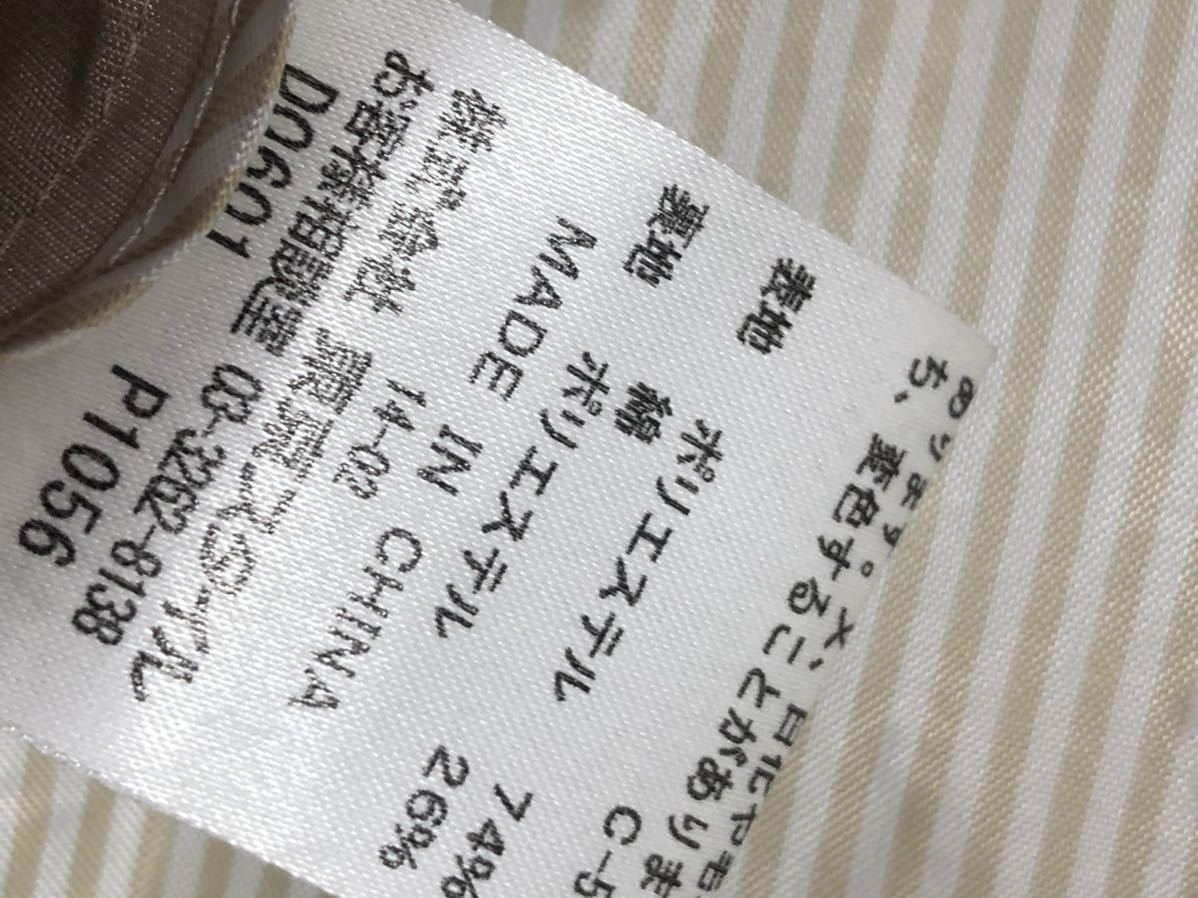 ります。又、日に
ち、変色することがありま
C-5
表地 ポリエステル 74%
綿 26%
裏地 ポリエステル
MADE IN CHINA
14-02
株式会社 東京スタイル
お客様相談室 03-3262-8138
D0601 P1056